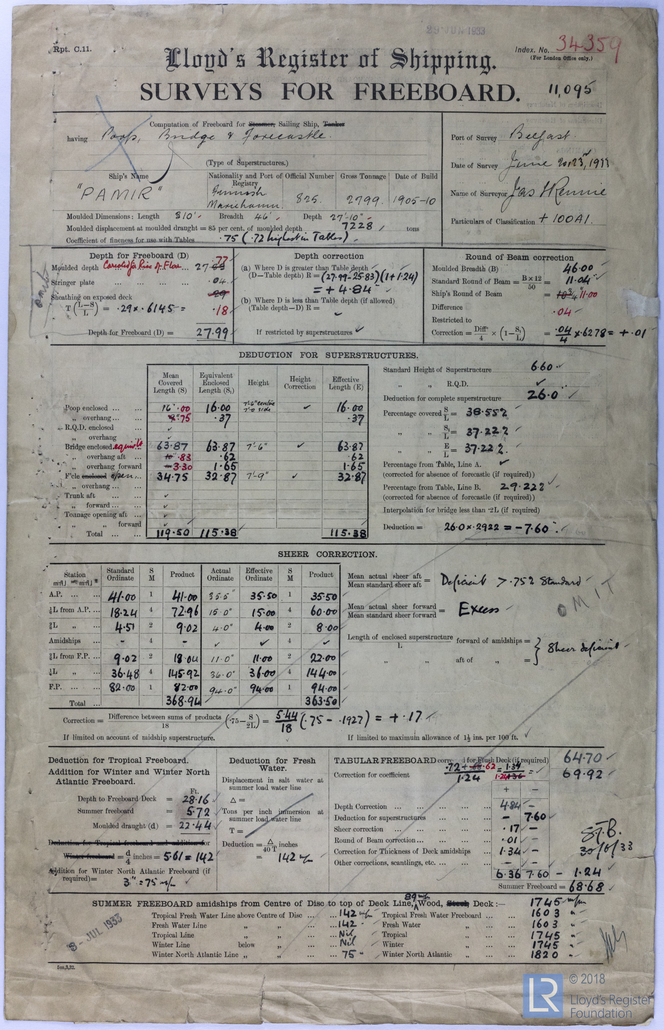 29 JUN 1933
Rpt. C.11.
Index. No. 34359
(For London Office only.)
Lloyd's Register of Shipping.
SURVEYS FOR FREEBOARD. 11,095
Computation of Freeboard for Steamer, Sailing Ship, Tanker
having Poop, Bridge & Forecastle.
(Type of Superstructures.)
Port of Survey Belfast.
Date of Survey June
Name of Surveyor Jas Rennie
Particulars of Classification + 100A1.
Ship's Name Nationality and Port of Registry Official Number Gross Tonnage Date of Build
"PAMIR" Finnish Mariehamn 825. 2799. 1905-10
Moulded Dimensions: Length 310' Breadth 46' Depth 27'-10"
Moulded displacement at moulded draught = 85 per cent. of moulded depth 7228 tons
Coefficient of fineness for use with Tables .75 (.72 highest in Tables)
Depth for Freeboard (D)
Moulded depth
Stringer plate .04
Sheathing on exposed deck
T (L-S/L) = .29 x .6145 = .18
Depth for Freeboard (D) = 27.99
Depth correction
(a) Where D is greater than Table depth
(D—Table depth) R = (27.99-25.83)(1+1.24)
= + 4.84
(b) Where D is less than Table depth (if allowed)
(Table depth—D) R =
If restricted by superstructures
Round of Beam correction
Moulded Breadth (B) 46.00
Standard Round of Beam = B×12/50 = 11.04
Ship's Round of Beam = 11.00
Difference .04
Restricted to
Correction = Diff/4 × (1-S/L) = .04/4 x .6278 = + .01
DEDUCTION FOR SUPERSTRUCTURES.
Mean Covered Length (S) Equivalent Enclosed Length (S₁) Height Height Correction Effective Length (E)
Poop enclosed 16.00 16.00 16.00
„ overhang .75 .37 .37
R.Q.D. enclosed
„ overhang
Bridge enclosed 63.87 63.87 7'-6" 63.87
„ overhang aft .83 .62 .62
„ overhang forward 3.30 1.65 1.65
F'cle enclosed open 34.75 32.87 7'-9" 32.87
„ overhang
Trunk aft
„ forward
Tonnage opening aft
„ „ forward
Total 119.50 115.38 115.38
Standard Height of Superstructure 6.60
„ „ R.Q.D.
Deduction for complete superstructure 26.0
Percentage covered S/L = 38.55%
„ „ S₁/L = 37.22%
„ „ E/L = 37.22%
Percentage from Table, Line A.
(corrected for absence of forecastle (if required))
Percentage from Table, Line B. 29.22%
(corrected for absence of forecastle (if required))
Interpolation for bridge less than ·2L (if required)
Deduction = 26.0 x .2922 = - 7.60
SHEER CORRECTION.
Station Standard Ordinate S M Product Actual Ordinate Effective Ordinate S M Product
A.P. 41.00 1 41.00 35.5" 35.50 1 35.50
¼L from A.P. 18.24 4 72.96 15.0" 15.00 4 60.00
¼L „ 4.51 2 9.02 4.0" 4.00 2 8.00
Amidships - 4 - 4
¼L from F.P. 9.02 2 18.04 11.0" 11.00 2 22.00
¼L „ 36.48 4 145.92 36.0" 36.00 4 144.00
F.P. 82.00 1 82.00 94.0" 94.00 1 94.00
Total 368.94 363.50
Mean actual sheer aft / Mean standard sheer aft = Deficient > .75% Standard
OMIT
Mean actual sheer forward / Mean standard sheer forward = Excess
Length of enclosed superstructure / L forward of amidships =
„ „ aft of „ = } Sheer deficient
Correction = Difference between sums of products / 18 (·75 − S/2L) = 5.44/18 (.75 - .1927) = + .17
If limited on account of midship superstructure. If limited to maximum allowance of 1½ ins. per 100 ft.
Deduction for Tropical Freeboard.
Addition for Winter and Winter North Atlantic Freeboard.
Ft.
Depth to Freeboard Deck = 28.16
Summer freeboard = 5.72
Moulded draught (d) = 22.44
Deduction for Tropical Freeboard and addition for
Winter freeboard = d/4 inches = 5.61 = 142
Addition for Winter North Atlantic Freeboard (if required) = 3" = 75 m/m
Deduction for Fresh Water.
Displacement in salt water at summer load water line
Δ =
Tons per inch immersion at summer load water line
T =
Deduction = Δ/40T inches
= 142 m/m
TABULAR FREEBOARD corrected for Flush Deck (if required) 64.70
Correction for coefficient 69.92
+ −
Depth Correction 4.84 -
Deduction for superstructures - 7.60
Sheer correction .17 -
Round of Beam correction .01 -
Correction for Thickness of Deck amidships 1.34 -
Other corrections, scantlings, etc. -
6.36 7.60 - 1.24
Summer Freeboard = 68.68
30/6/33
SUMMER FREEBOARD amidships from Centre of Disc to top of Deck Line, Wood, Steel Deck :— 1745 m/m
Tropical Fresh Water Line above Centre of Disc 142 m/m Tropical Fresh Water Freeboard 1603
Fresh Water Line „ „ 142 Fresh Water „ 1603
Tropical Line „ „ Nil Tropical „ 1745
Winter Line below „ Nil Winter „ 1745
Winter North Atlantic Line „ „ 75 Winter North Atlantic „ 1820
8 - JUL 1933
LR
© 2018
Lloyd's Register
Foundation